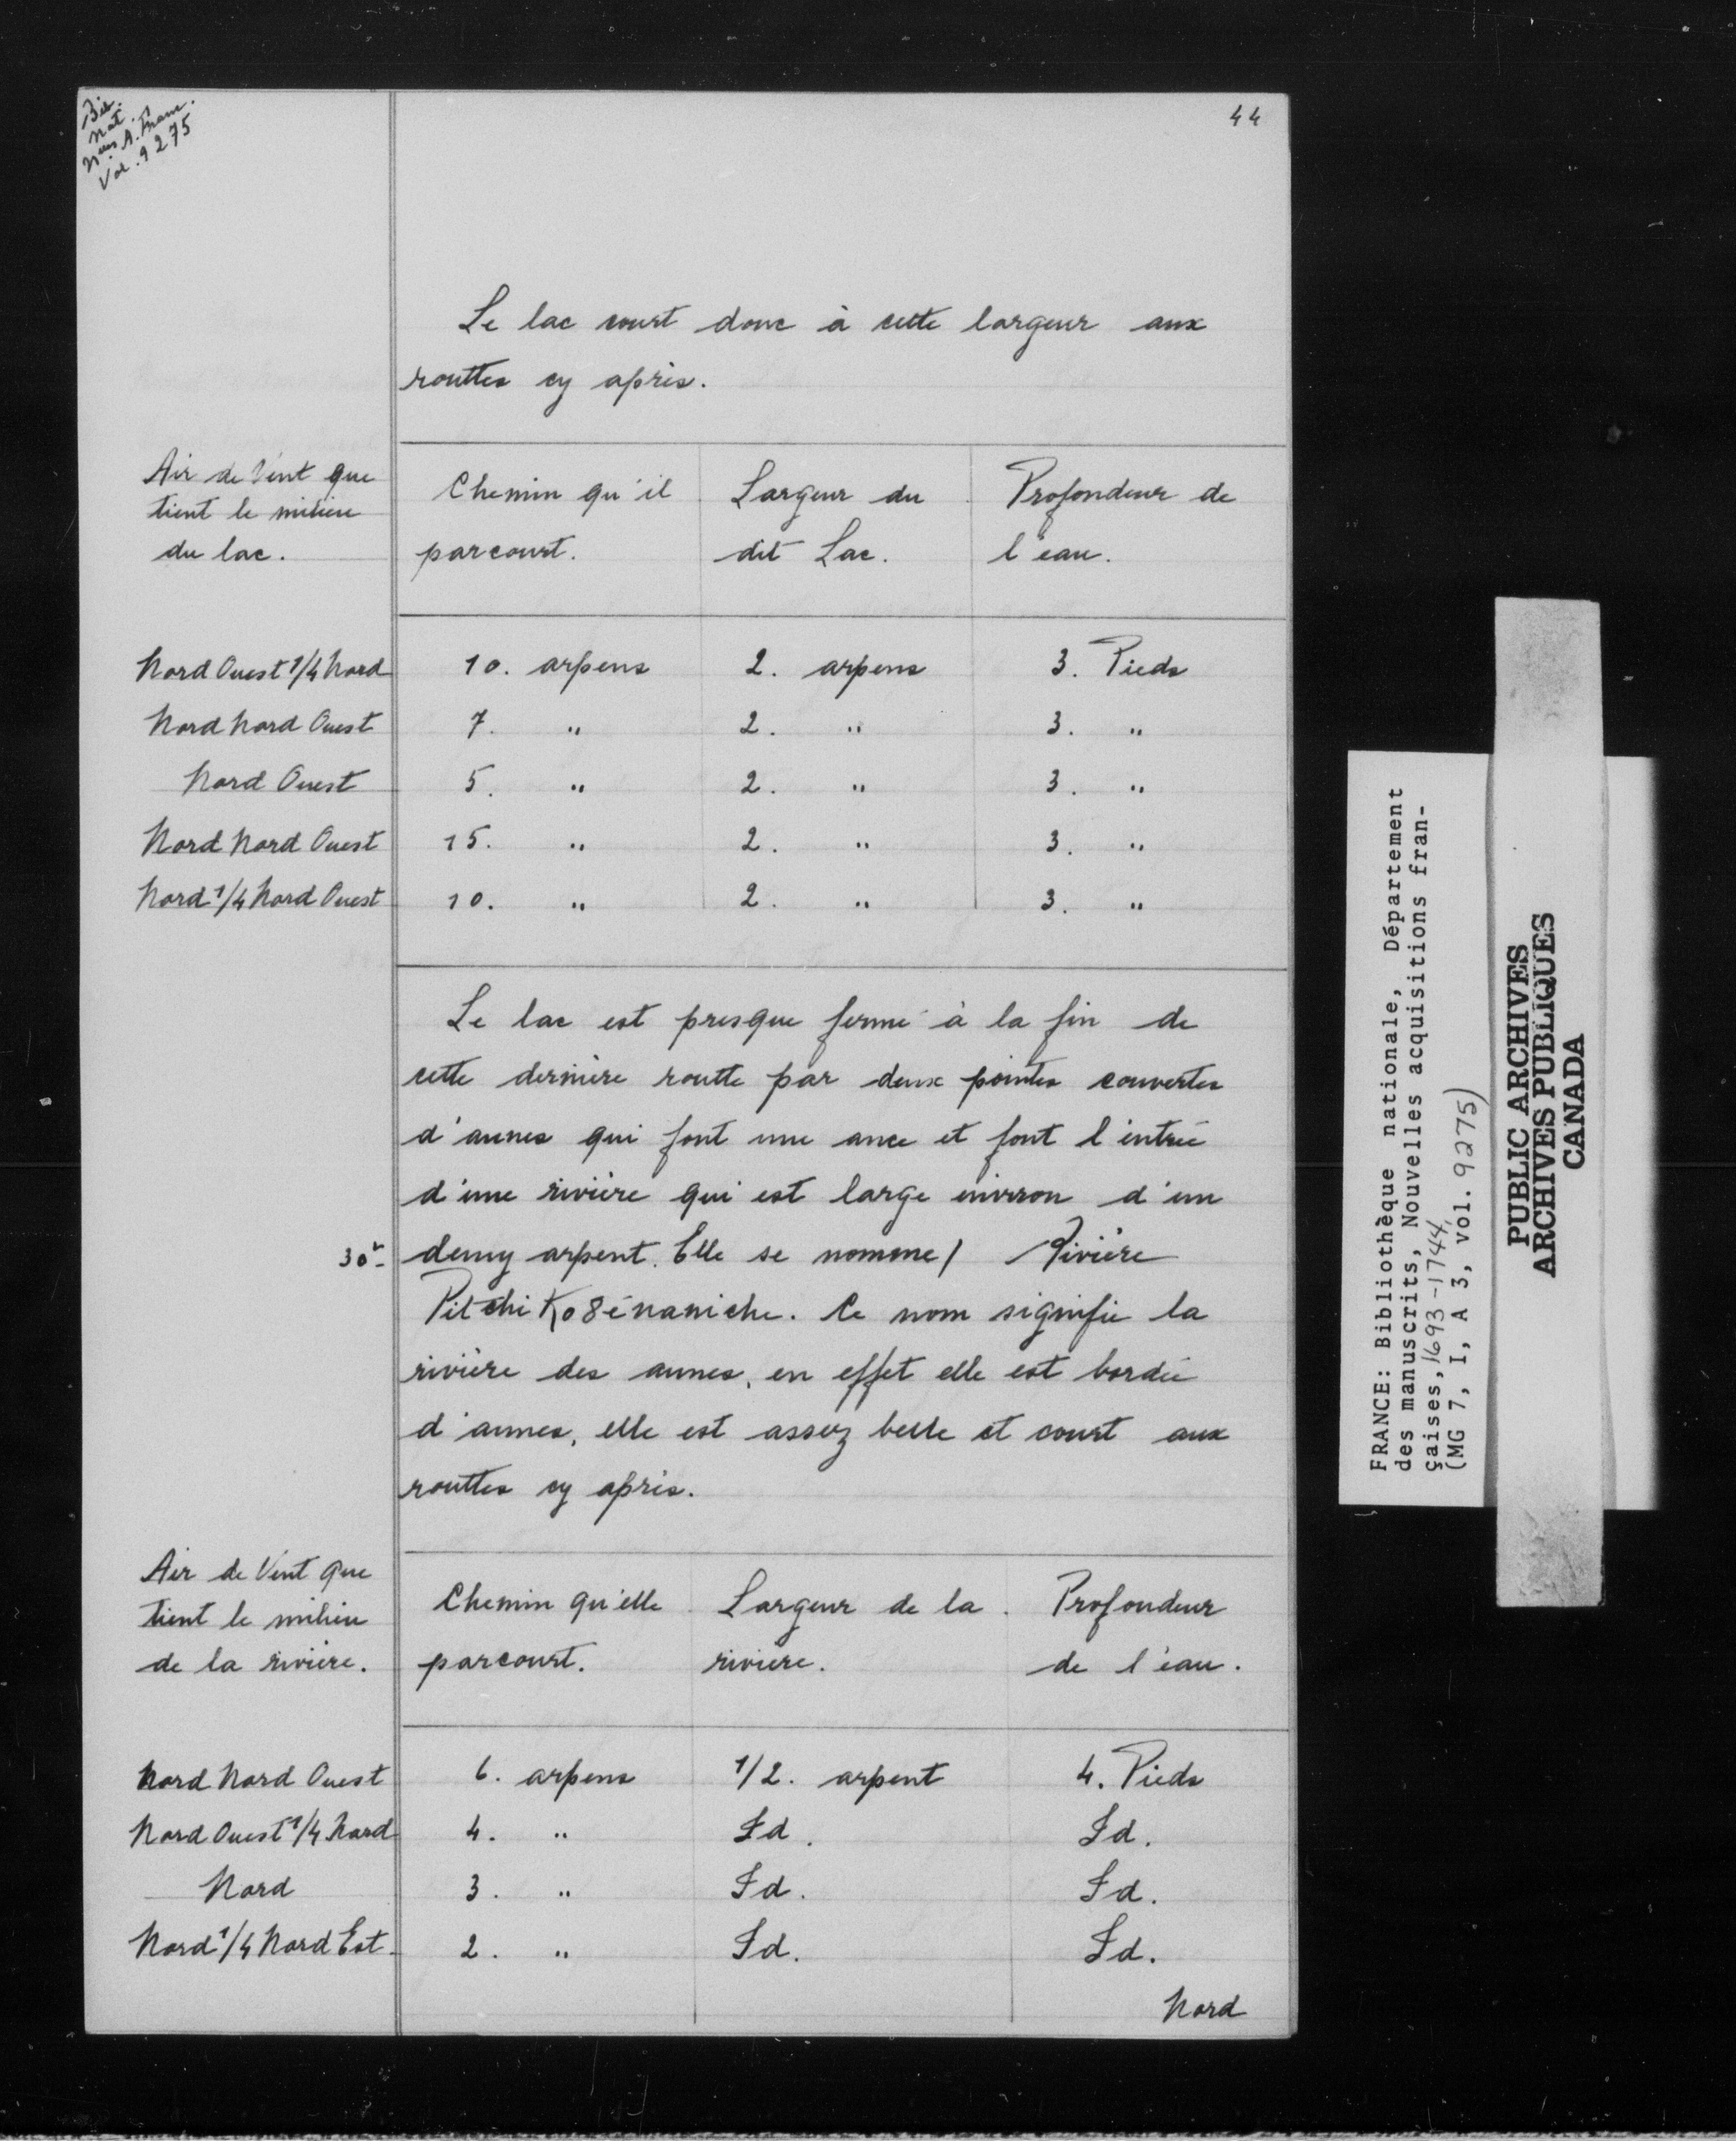 Bib.
nat.
Nlles A. Franc.
Vol. 9275
44
Le lac court donc à cette largeur aux
routtes cy après.
Air de Vent que
tient le milieu
du lac.
Chemin qu'il
parcourt.
Largeur du
dit Lac.
Profondeur de
l'eau.
Nord Ouest 1/4 Nord 10. arpens 2. arpens 3. Pieds
Nord Nord Ouest 7. " 2. " 3. "
Nord Ouest 5. " 2. " 3. "
Nord Nord Ouest 15. " 2. " 3. "
Nord 1/4 Nord Ouest 10. " 2. " 3. "
Le lac est presque fermé à la fin de
cette dernière routte par deux pointes couvertes
d'aunes qui font une ance et font l'entrée
d'une rivière qui est large environ d'un
demy arpent. Elle se nomme / Rivière
Pitchi Ko8énaniche. Ce nom signifie la
rivière des aunes, en effet elle est bordée
d'aunes, elle est assez belle et court aux
routtes cy après.
Air de Vent que
tient le milieu
de la rivière.
Chemin qu'elle
parcourt.
Largeur de la
rivière.
Profondeur
de l'eau.
Nord Nord Ouest 6. arpens 1/2. arpent 4. Pieds
Nord Ouest 1/4 Nord 4. " Id. Id.
Nord 3. " Id. Id.
Nord 1/4 Nord Est 2. " Id. Id.
Nord
FRANCE: Bibliothèque nationale, Département
des manuscrits, Nouvelles acquisitions fran-
çaises, 1693-1744
(MG 7, I, A 3, vol. 9275)
PUBLIC ARCHIVES
ARCHIVES PUBLIQUES
CANADA